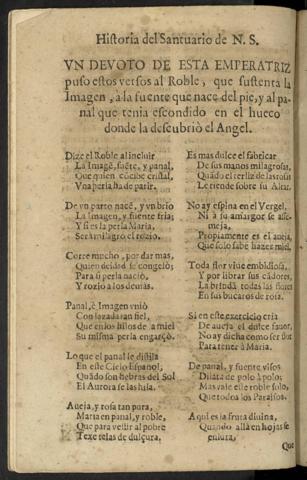 Historia del Santuario de N. S.
VN DEVOTO DE ESTA EMPERATRIZ
puso estos versos al Roble, que sustenta la
Imagen, a la fuente que nace del pie, y al pa-
nal que tenia escondido en el hueco
donde la descubriò el Angel.
Dize el Roble al incluir
La Imagē, fuēte, y panal,
Que quien cōcibe cristal,
Vna perla ha de parir.
De vn parto nacē, y vn brio
La Imagen, y fuente fria;
Y si es la perla Maria,
Serà milagro el rozio.
Corre mucho, por dar mas,
Quien deidad se congelò;
Para ti perla naciò,
Y rozio a los demàs.
Panal, è Imagen vniò
Con lazada tan fiel,
Que en los hilos de a miel
Su misma perla engarçò.
Lo que el panal le distila
En este Cielo Español,
Quādo son hebras del Sol
El Aurora se las hila.
Aueja, y rosa tan pura,
Maria en panal, y roble,
Que para vestir al pobre
Texe telas de dulçura.
Es mas dulce el fabricar
De sus manos milagrosas,
Quādo el terliz de las rosas
Le tiende sobre su Altar.
No ay espina en el Vergel,
Ni à su amargor se asse-
meja,
Propiamente es aueja,
Que solo sabe hazer miel.
Toda flor viue embidiosa,
Y por librar sus cādores,
La brindā todas las flores
En sus bucaros de rosa.
Si en este exercicio cria
De aueja el dulce fauor,
No ay dicha como ser flor
Para tener à Maria.
De panal, y fuente visos
Dilata de polo à polo;
Mas vale este roble solo,
Que todos los Paraisos.
Aqui es la fruta diuina,
Quando allà en hojas se
Que